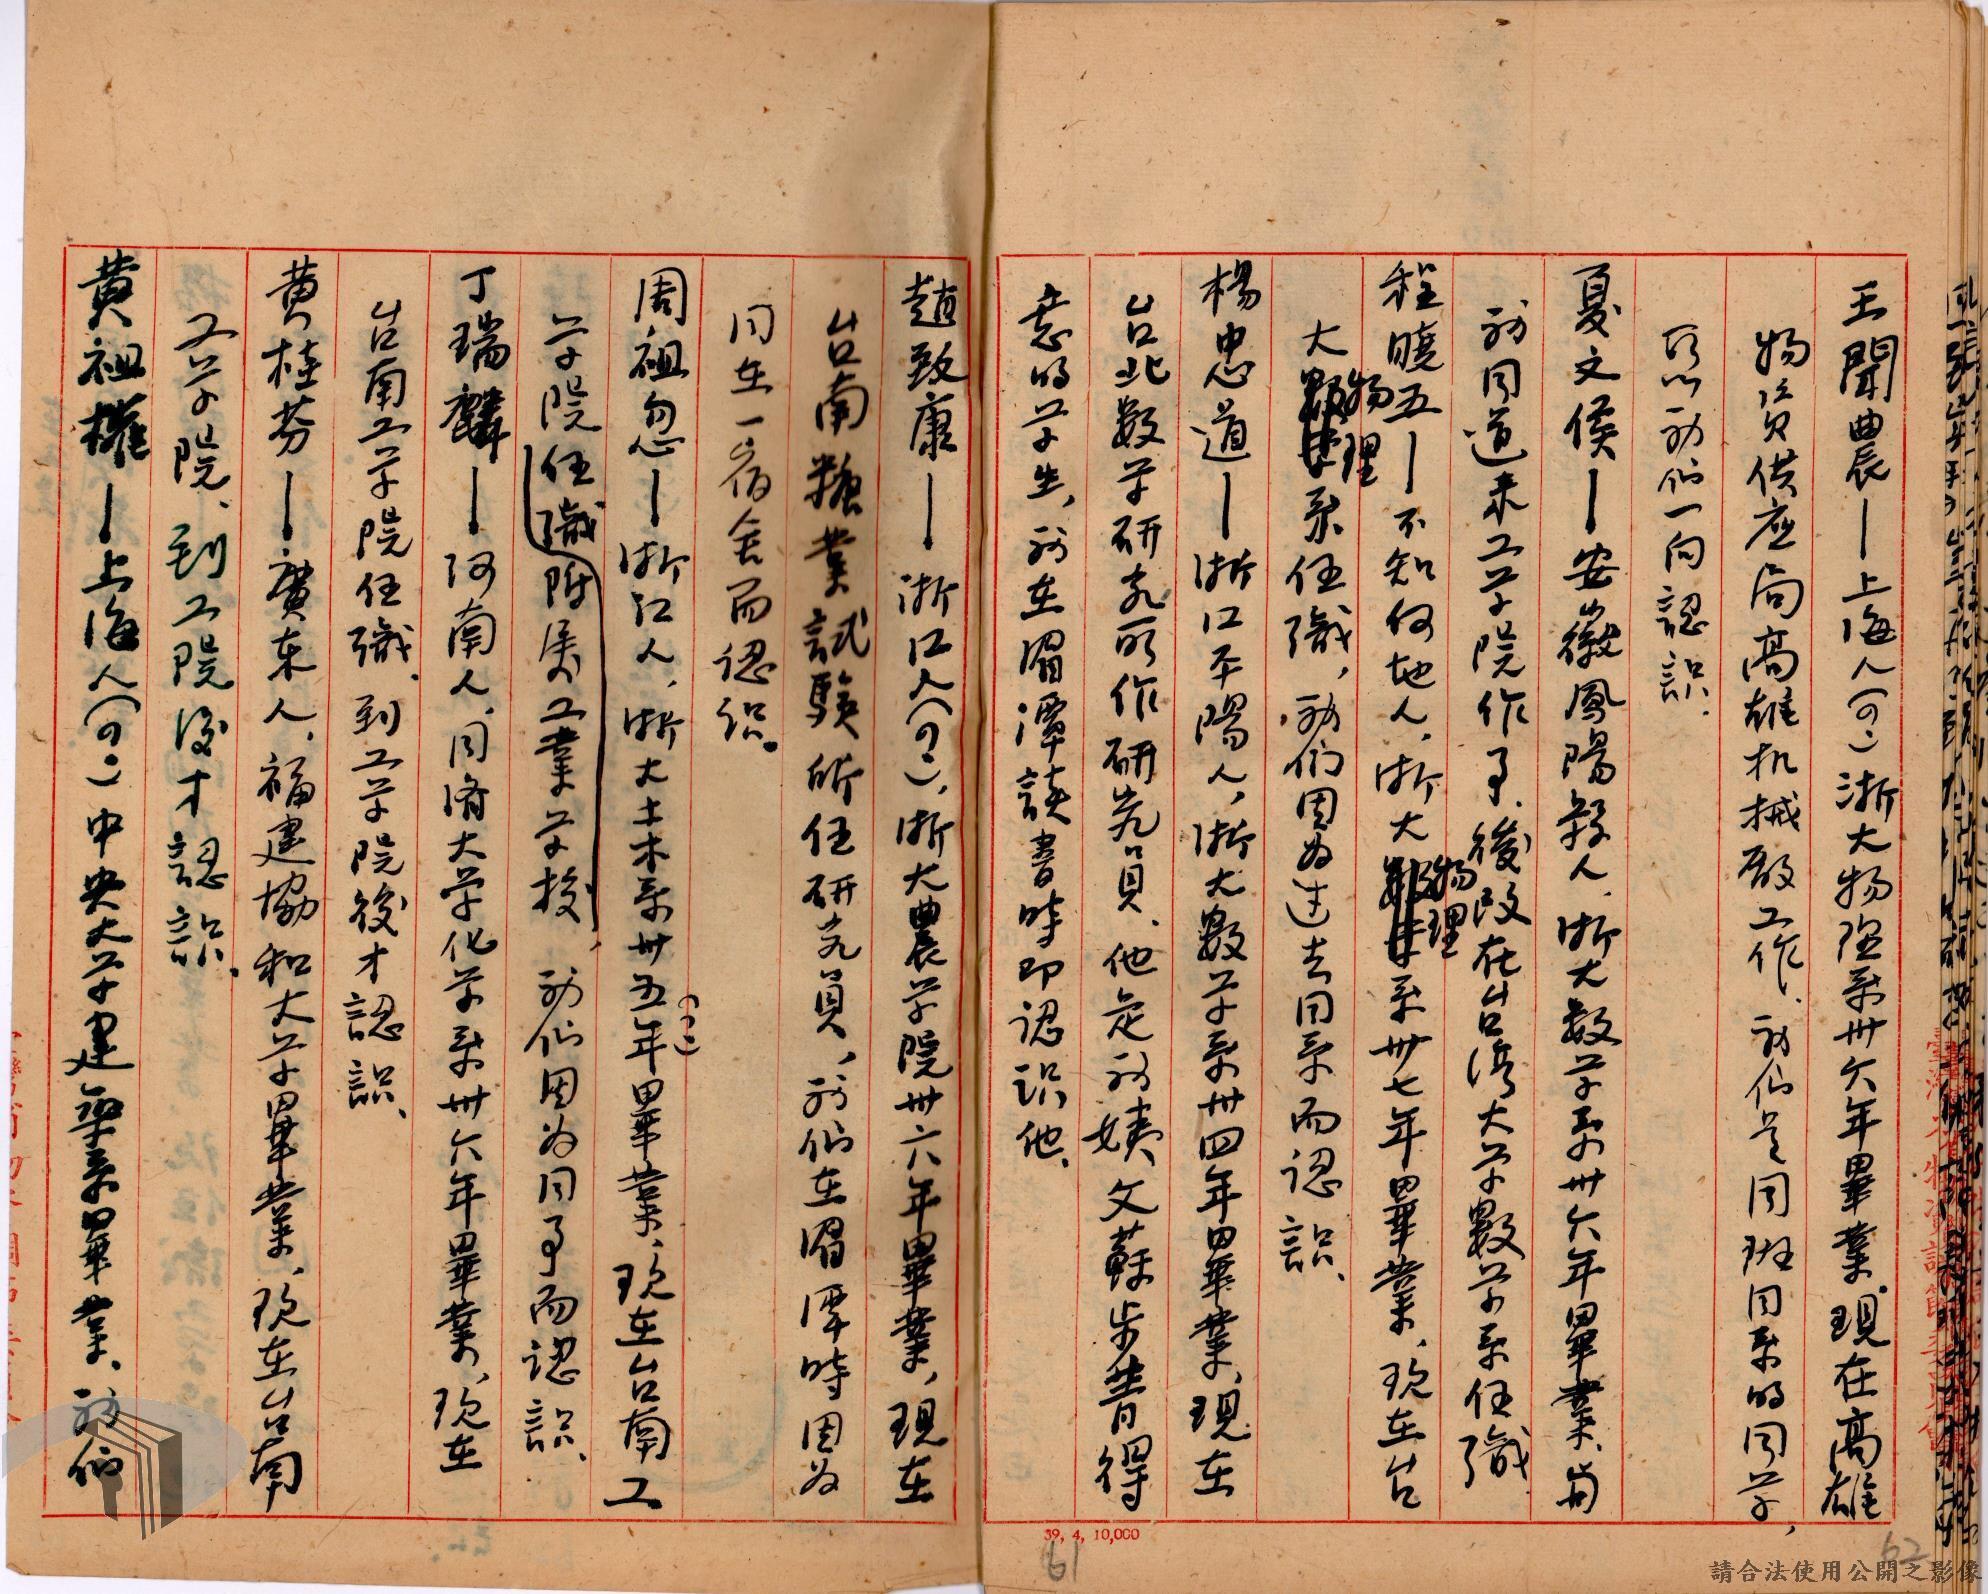 王聞農—上海人(?)浙大物理系卅六年畢業。現在高雄
物資供应局高雄机械厰工作、我们是同班同系的同学，
所以我们一向認識.
夏文侯—安徽鳳陽縣人.浙大数学系卅六年畢業、與
我同道来工学院作事、後改在台湾大学數学系任職
程曉五—不知何地人、浙大物理系卅七年畢業、現在台
大物理系任職，我们因為过去同系而認識、
楊忠道—浙江平陽人，浙大數学系卅四年畢業、現在
台北数学研究所作研究員、他是我姨丈蘇步青得
意的学生，我在湄潭读書時即認识他、
趙致康—浙江人(?)，浙大農学院卅六年畢業，現在
台南糖業試驗所任研究員，我们在湄潭時因为
同在一宿舍而認识。
周祖忽—浙江人，浙大土木系卅五年(?)畢業，現在台南工
学院附属工業学校，我们因为同事而認識.
丁瑞麟—河南人.同濟大学化学系卅六年畢業、現在
台南工学院任職、到工学院後才認識、
黄桂芬—廣東人.福建協和大学畢業、現在台南
工学院、到工院後才認識、
黄祖權—上海人(?)中央大学建築系畢業、我们
39, 4, 10,000
61
62
請合法使用公開之影像